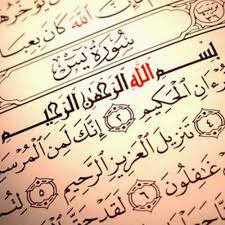 الله كان بعبا
سورة يس
بسم الله الرحمن الرحيم
ءان الحكيم ٢ إنك لمن المرس
تنزيل العزيز الرحيم ٥
غفلون ٦ لقد حق